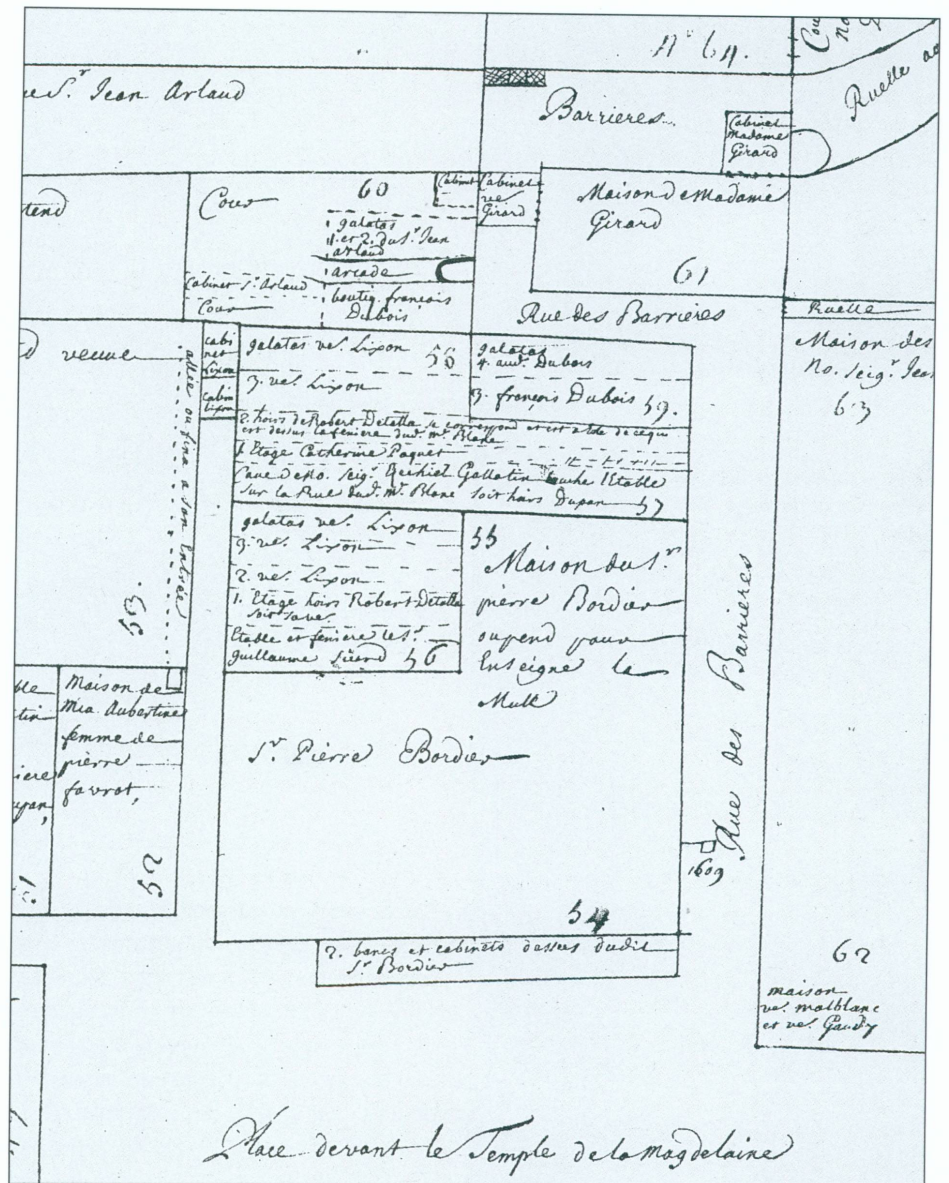 N.° 64.
Ruelle
Sr. Jean Arlaud
Barrieres
Cabinet
madame
Girard
tend
Cour
60
Cabinet
Cabinet
ve.
Girard
Maison de Madame
Girard
61
galatas
1. er 2. du Sr. Jean
arlaud
arcade
Cabinet Sr. Arlaud
Cour
boutiq. françois
Dubois
Rue des Barrieres
Ruelle
Maison des
No. Seig.r Jea
63
veuve
allée ou fina a son Entrée
cabi
net
Lixon
cabin
Lixon
galatas ve. Lixon 58
3. ve. Lixon
galatas
4. aud. Dubois
3. françois Dubois 59.
2. hoirs de Robert Detalla se correspond et est a lde de cequi
est dessus la feniere dud. mr. Blanc
1. Etage Catherine Paquet
Cave de No. Seig.r Ezechiel Gallatin l'Etable
sur la Rue dud. mr. Blanc soit hoirs Dupan 57
galatas ve. Lixon
3. ve. Lixon
2. ve. Lixon
1. Etage hoirs Robert Detalla
Etable et feniere le Sr.
guillaume 56
55
Maison du Sr.
pierre Bordier
ou pend pour
Enseigne la
Mule
53.
Maison de
Mia. Aubertine
femme de
pierre
favrot,
52
51
Sr. Pierre Bordier
54
Rue des Barrieres
1609
2. bancs et cabinets dessus dudit
Sr. Bordier
62
maison
ve. malblanc
et ve. Gaudy
Place devant le Temple de la Magdelaine